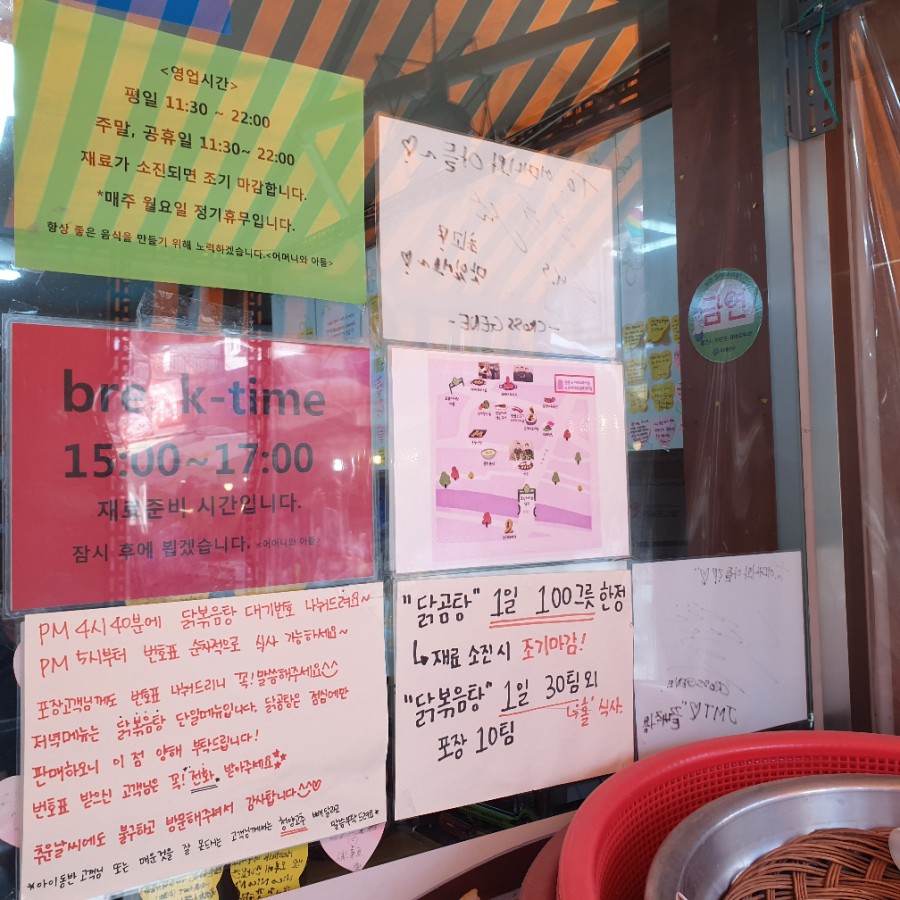 <영업시간>
평일 11:30 ~ 22:00
주말, 공휴일 11:30~ 22:00
재료가 소진되면 조기 마감합니다.
*매주 월요일 정기휴무입니다.
항상 좋은 음식을 만들기 위해 노력하겠습니다.<어머니와 아들>
To. 어머니와 아들~♡
최고!
맛있어요~♡
-CROSS GENE-
금연
break-time
15:00~17:00
재료준비 시간입니다.
잠시 후에 뵙겠습니다. <어머니와 아들>
PM 4시 40분에 닭볶음탕 대기번호 나눠드려요~
PM 5시부터 번호표 순차적으로 식사 가능하세요~
포장고객님께도 번호표 나눠드리니 꼭! 말씀해주세요^^
저녁메뉴는 닭볶음탕 단일메뉴입니다. 닭곰탕은 점심에만
판매하오니 이 점 양해 부탁드립니다!
번호표 받으신 고객님은 꼭! 전화 받아주세요
추운날씨에도 불구하고 방문해주셔서 감사합니다^^♡
*아이동반고객님 또는 매운것을 잘 못드시는 고객님께서는 청양고추 빼달라고 말씀부탁드려요*
"닭곰탕" 1일 100그릇 한정
↳ 재료 소진시 조기마감!
"닭볶음탕" 1일 30팀 외
'홀' 식사.
포장 10팀
CROSS GENE
JMT♡